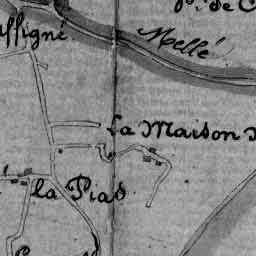 ffigné
Mellé
La Maison
la Pias